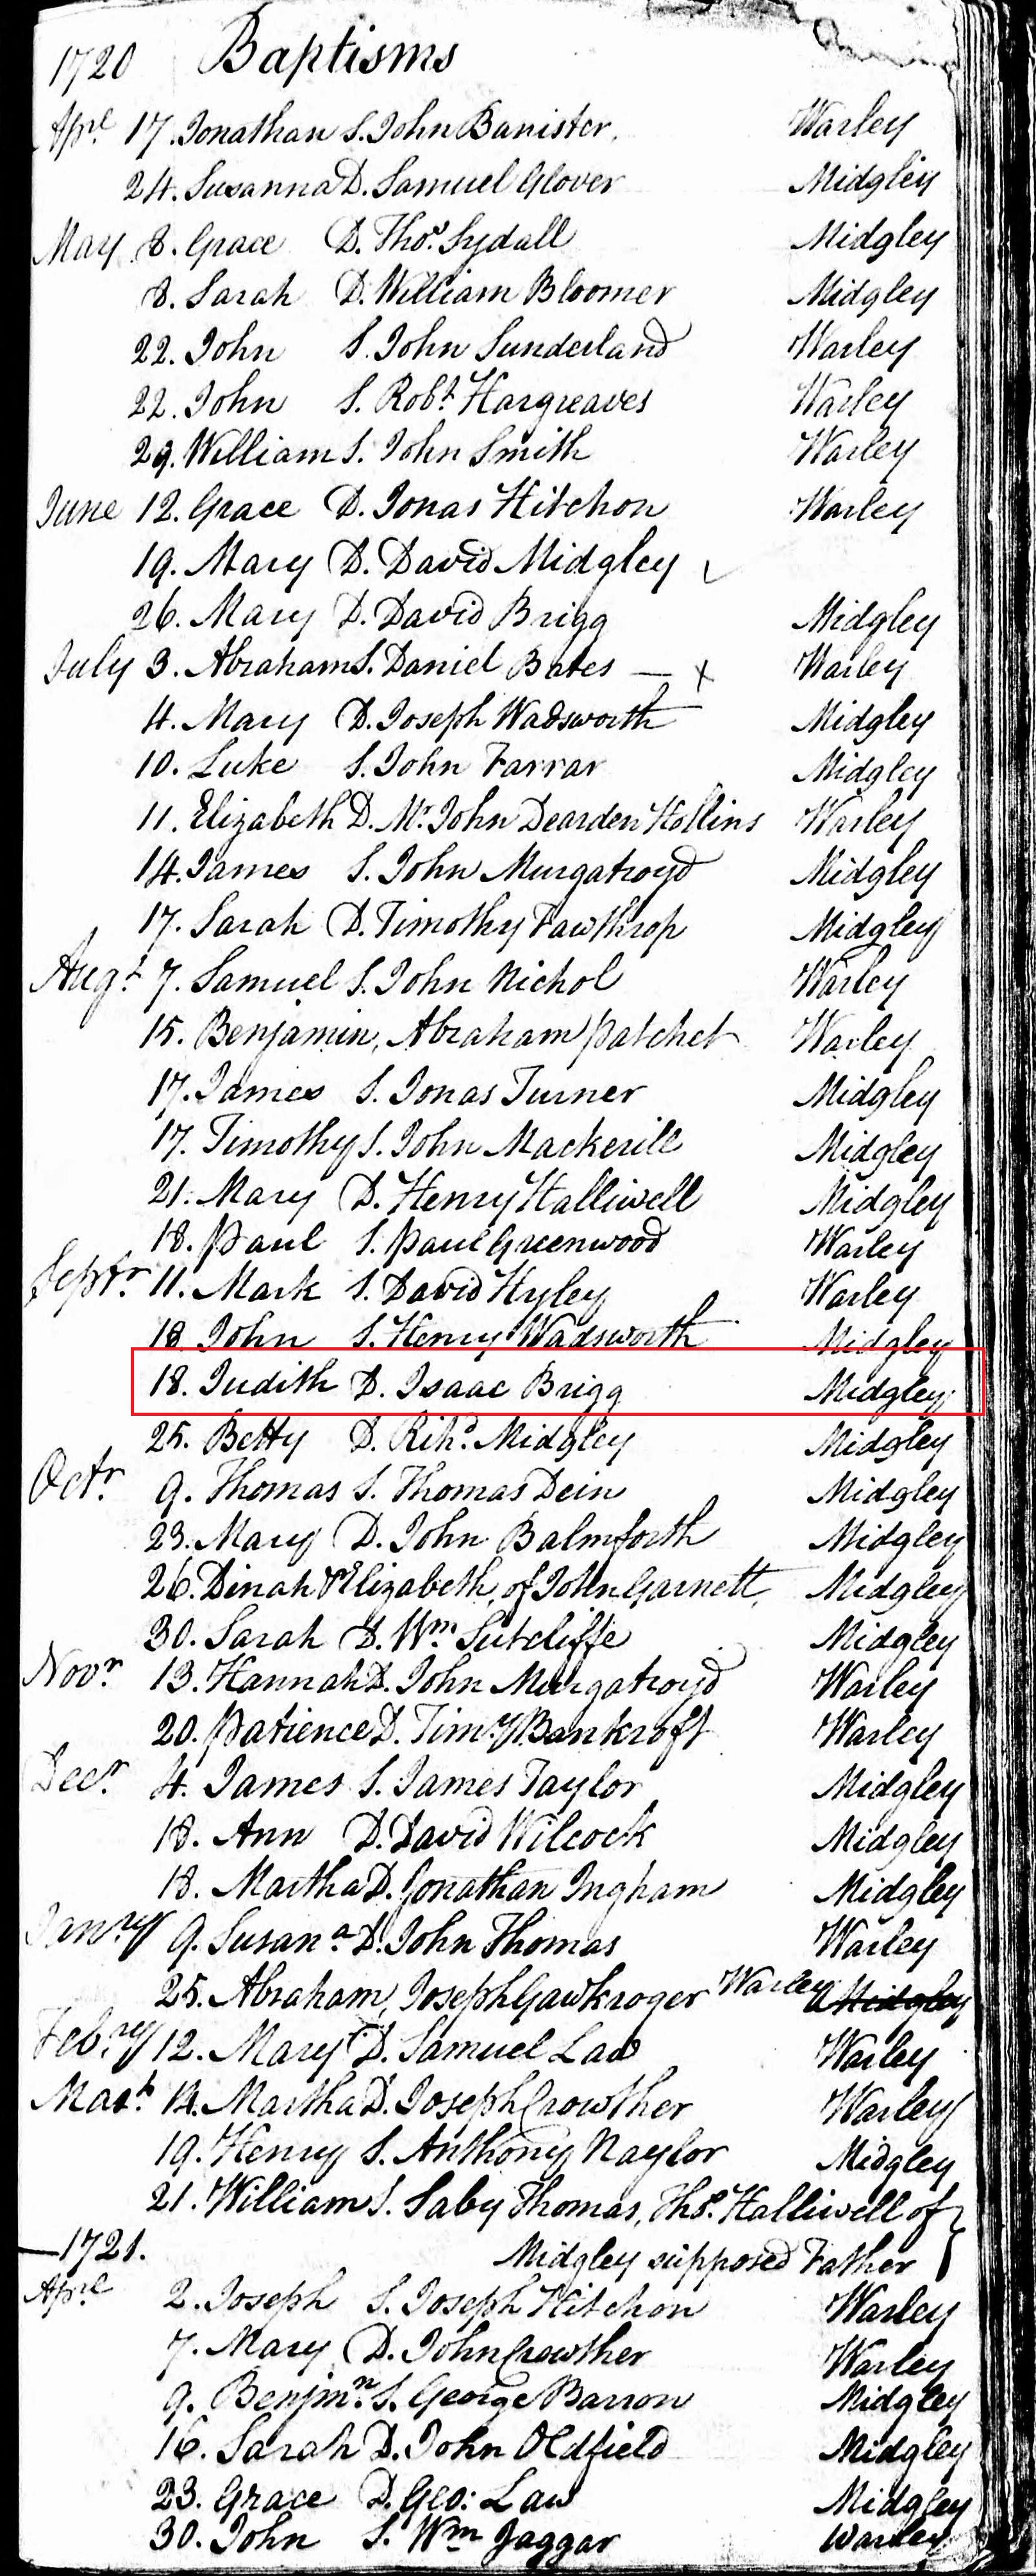 1720 Baptisms
Aprl 17. Jonathan S. John Banister. Warley
24. Susanna D. Samuel Glover Midgley
May 8. Grace D. Thos. Sydall Midgley
8. Sarah D. William Bloomer Midgley
22. John S. John Sunderland Warley
22. John S. Robt. Hargreaves Warley
29. William S. John Smith Warley
June 12. Grace D. Jonas Hitchon Warley
19. Mary D. David Midgley ✓
26. Mary D. David Brigg Midgley
July 3. Abraham S. Daniel Bates — x Warley
4. Mary D. Joseph Wadsworth Midgley
10. Luke S. John Farrar Midgley
11. Elizabeth D. Mr. John Dearden Hollins Warley
14. James S. John Murgatroyd Midgley
17. Sarah D. Timothy Fawthrop Midgley
Augt. 7. Samuel S. John Nichol Warley
15. Benjamin, Abraham Patchet Warley
17. James S. Jonas Turner Midgley
17. Timothy S. John Mackerill Midgley
21. Mary D. Henry Halliwell Midgley
18. Paul S. Paul Greenwood Warley
Septr. 11. Mark S. David Hyley Warley
18. John S. Henry Wadsworth Midgley
18. Judith D. Isaac Brigg Midgley
25. Betty D. Rihd. Midgley Midgley
Octr. 9. Thomas S. Thomas Dein Midgley
23. Mary D. John Balmforth Midgley
26. Dinah & Elizabeth, of John Garnett, Midgley
30. Sarah D. Wm. Sutcliffe Midgley
Novr. 13. Hannah D. John Murgatroyd Warley
20. Patience D. Timy. Bankroft Warley
Decr. 4. James S. James Taylor Midgley
18. Ann D. David Wilcock Midgley
18. Martha D. Jonathan Ingham Midgley
Janry 9. Susana. D. John Thomas Warley
25. Abraham, Joseph Gawkroger Warley Midgley
Febry 12. Mary D. Samuel Law Warley
Mart. 14. Martha D. Joseph Crowther Warley
19. Henry S. Anthony Naylor Midgley
21. William S. Saby Thomas, Thos. Halliwell of
—1721. Midgley supposed Father
Aprl 2. Joseph S. Joseph Hitchon Warley
7. Mary D. John Crowther Warley
9. Benjmn. S. George Barron Midgley
16. Sarah D. John Oldfield Midgley
23. Grace D. Geo: Law Midgley
30. John S. Wm Jaggar Warley